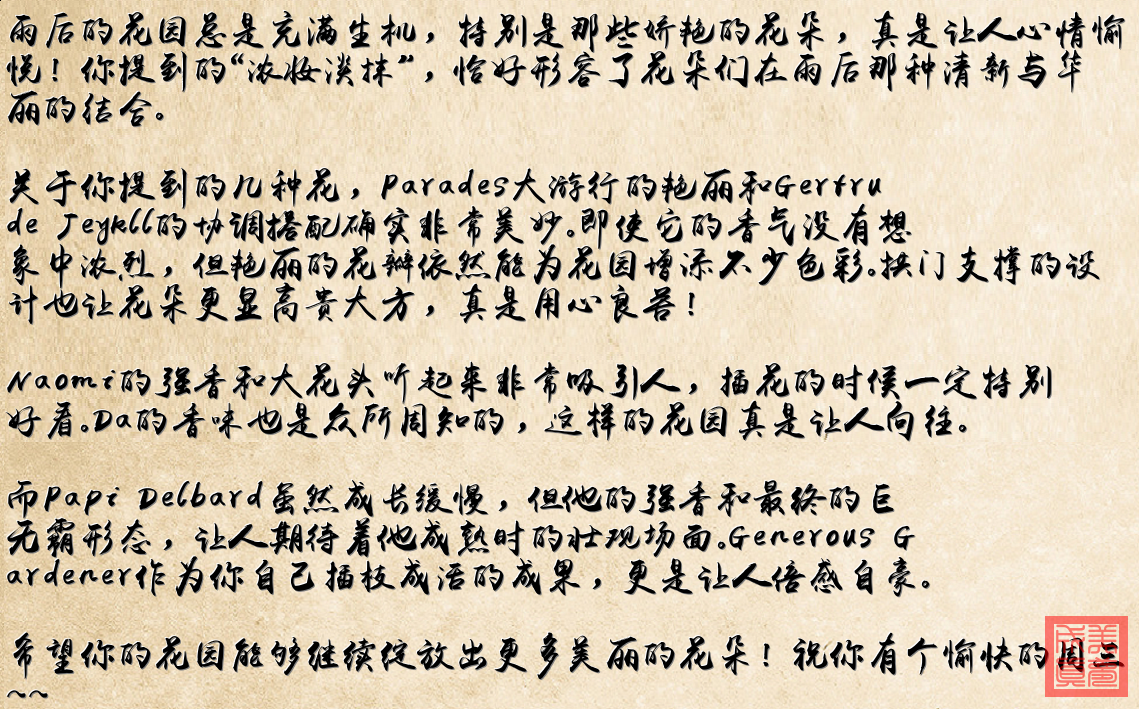 雨后的花园总是充满生机，特别是那些娇艳的花朵，真是让人心情愉
悦！你提到的“浓妆淡抹”，恰好形容了花朵们在雨后那种清新与华
丽的结合。
关于你提到的几种花，Parades大游行的艳丽和Gertru
de Jeykll的协调搭配确实非常美妙.即使它的香气没有想
象中浓烈，但艳丽的花瓣依然能为花园增添不少色彩.拱门支撑的设
计也让花朵更显高贵大方，真是用心良苦！
Naomi的强香和大花头听起来非常吸引人，插花的时候一定特别
好看.Da的香味也是众所周知的，这样的花园真是让人向往。
而Papi Delbard虽然成长缓慢，但他的强香和最终的巨
无霸形态，让人期待着他成熟时的壮观场面.Generous G
ardener作为你自己插枝成活的成果，更是让人倍感自豪。
希望你的花园能够继续绽放出更多美丽的花朵！祝你有个愉快的周三
~~